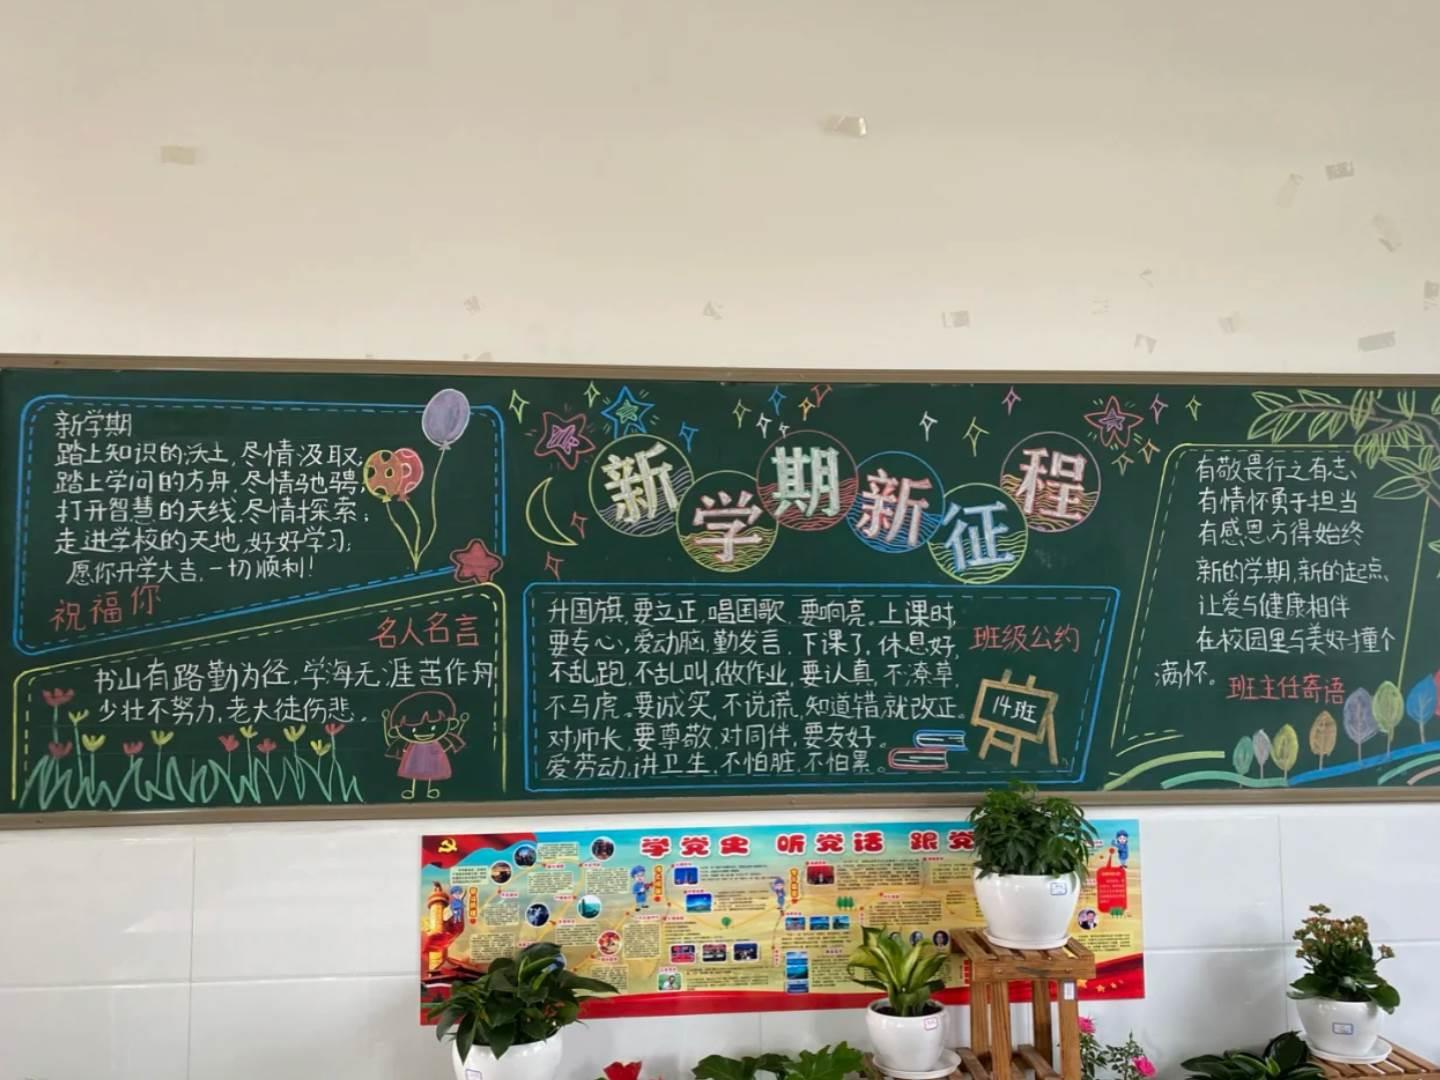 新学期新征程
新学期
踏上知识的沃土,尽情汲取;
踏上学问的方舟,尽情驰骋;
打开智慧的天线,尽情探索;
走进学校的天地,好好学习;
愿你开学大吉,一切顺利!
祝福你
名人名言
书山有路勤为径,学海无涯苦作舟
少壮不努力,老大徒伤悲。
升国旗,要立正,唱国歌,要响亮。上课时,
要专心,爱动脑,勤发言,下课了,休息好,
不乱跑,不乱叫,做作业,要认真,不潦草
不马虎。要诚实,不说谎,知道错,就改正。
对师长,要尊敬,对同伴,要友好。
爱劳动,讲卫生,不怕脏,不怕累。
班级公约
14班
有敬畏行之有志、
有情怀勇于担当
有感恩方得始终
新的学期,新的起点、
让爱与健康相伴
在校园里与美好撞个
满怀。
班主任寄语
学党史 听党话 跟党